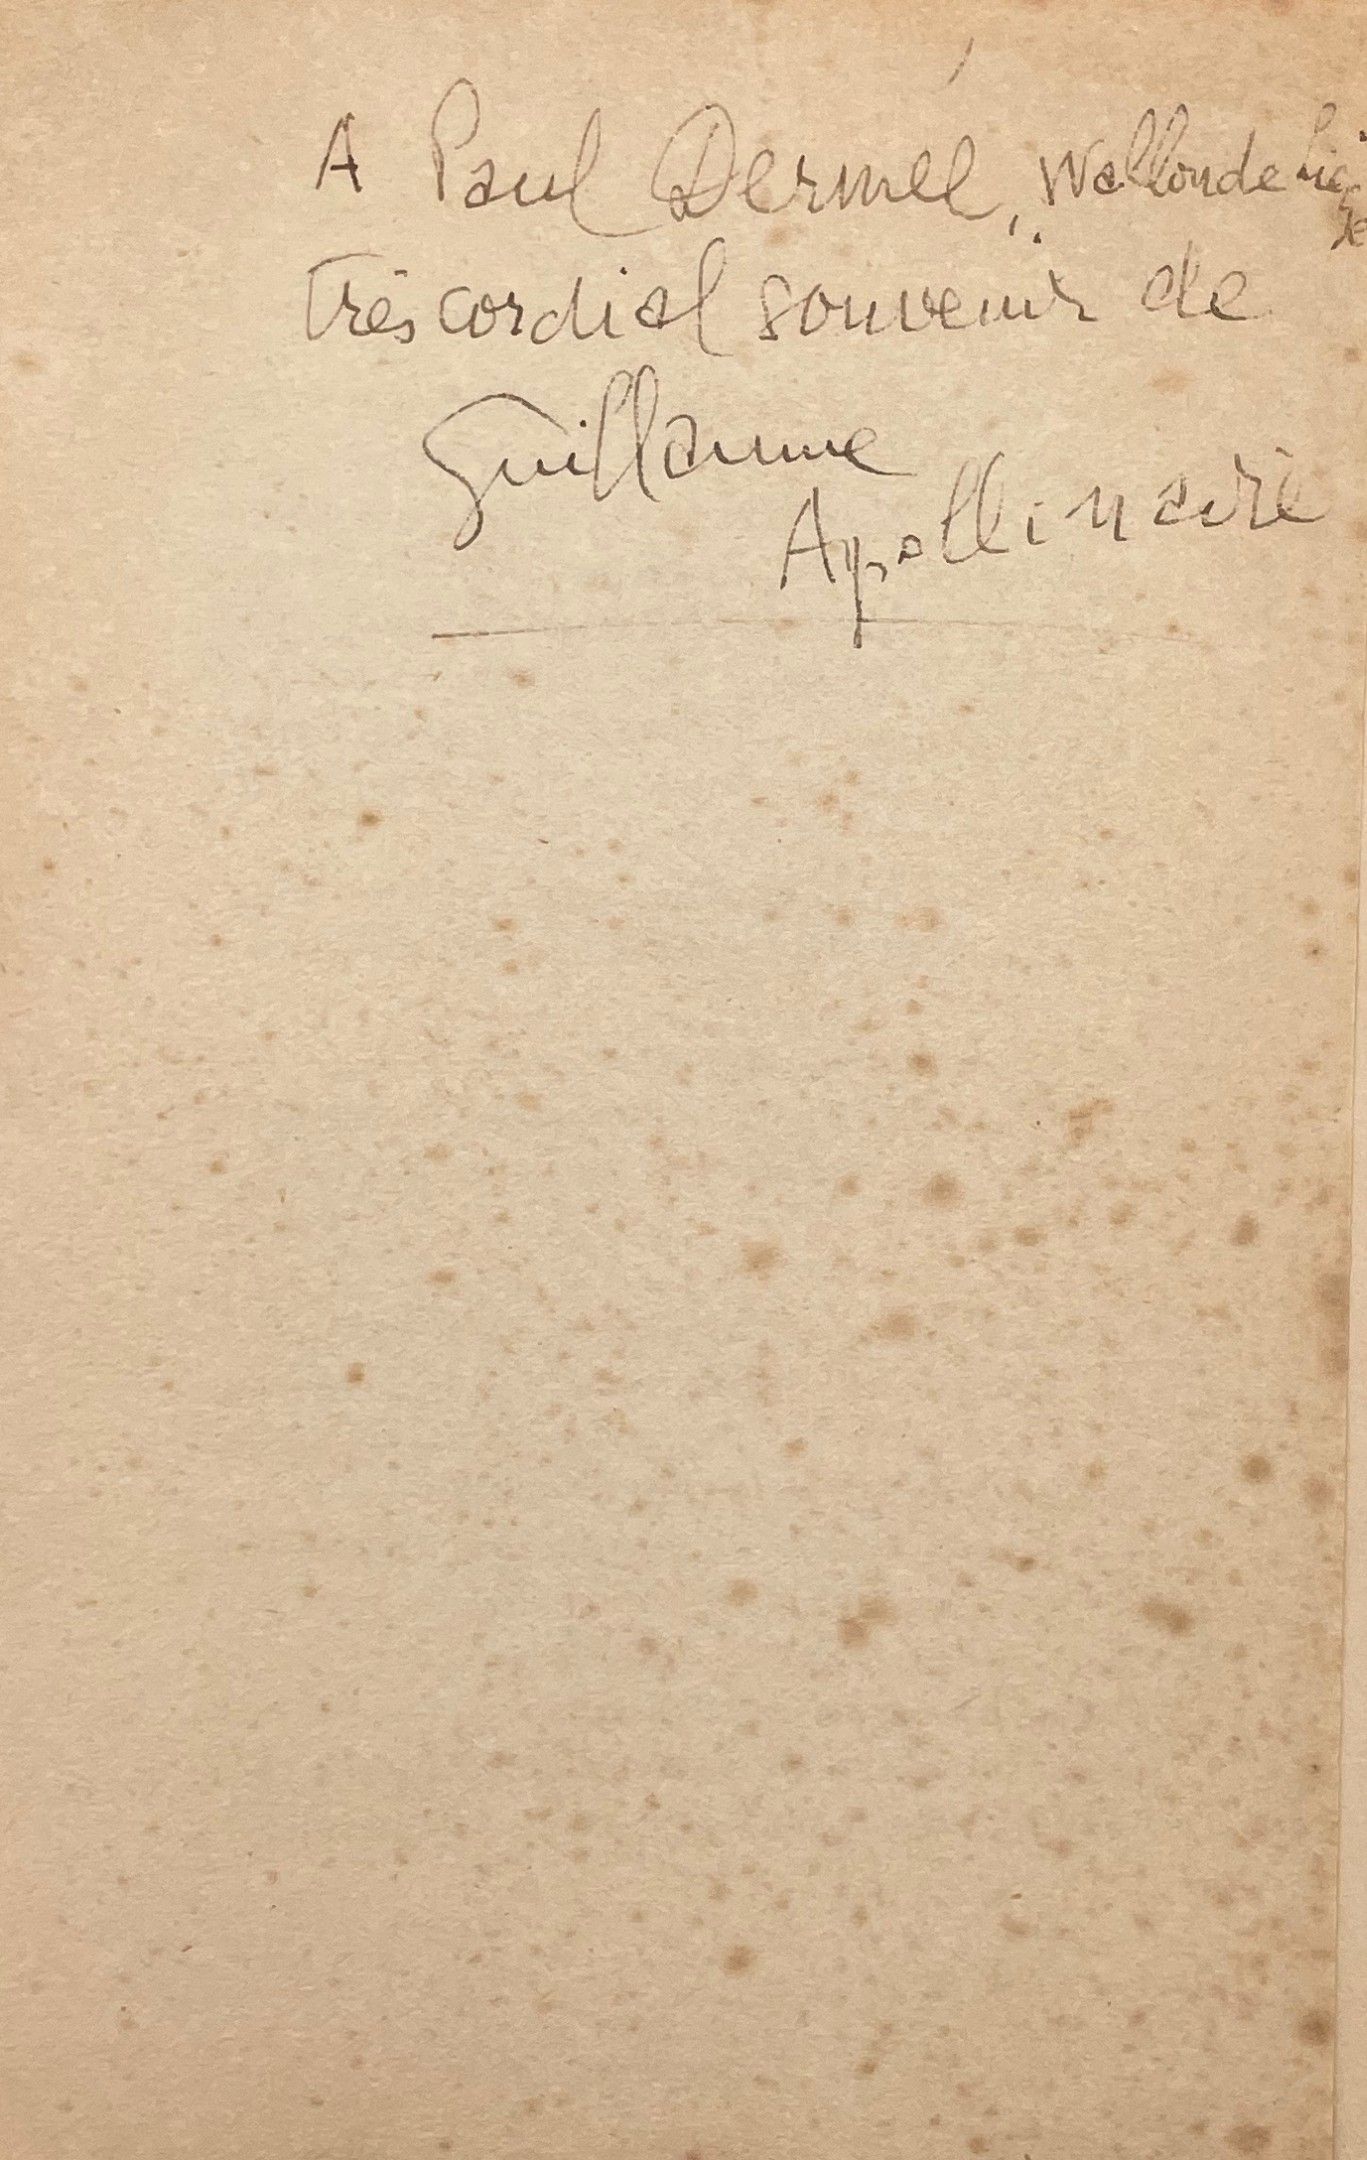 A Paul Dermée, Wallon de Liège
très cordial souvenir de
Guillaume
Apollinaire